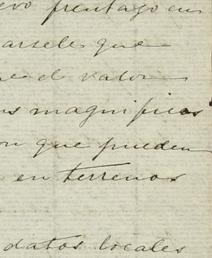 evo prentago en
arsele que
e el valor
us magnificos
on que pueden
en terrenos
datos locales